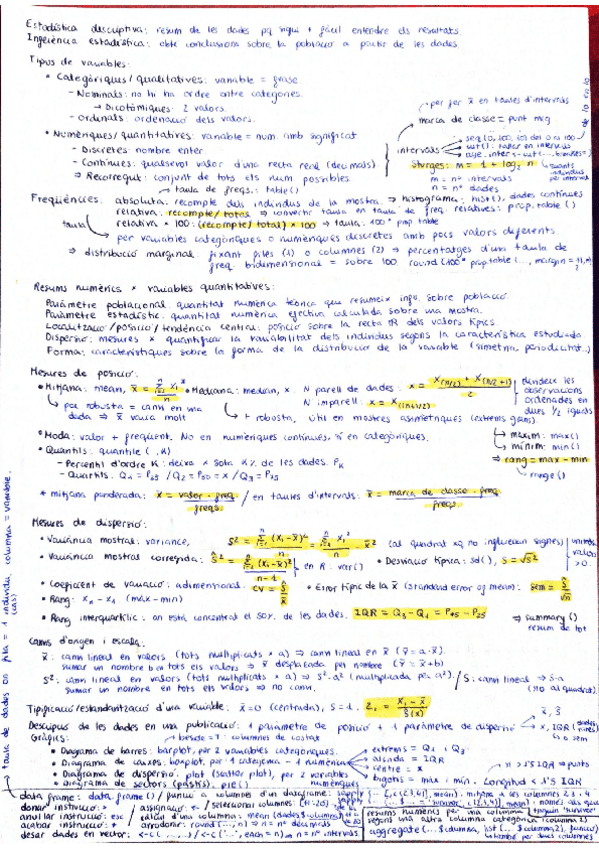 Estadística descriptiva: resum de les dades pq sigui + fàcil entendre els resultats.
Inferència estadística: obté conclusions sobre la població a partir de les dades.
Tipus de variables:
• Categòriques/qualitatives: variable = frase
- Nominals: no hi ha ordre entre categories.
→ Dicotòmiques: 2 valors.
- Ordinals: ordenació dels valors.
• Numèriques/quantitatives: variable = num. amb significat
- Discretes: nombre enter
- Contínues: qualsevol valor d'una recta real (decimals)
⇒ Recorregut: conjunt de tots els num possibles
per fer x̄ en taules d'intervals
marca de classe = punt mig
intervals
Sturges: m = 1 + log₂ n
m = nº intervals
n = nº dades
taula de freqs.: table()
Freqüències: absoluta: recompte dels individus de la mostra ⇒ histograma: hist(), dades contínues
relativa: recompte/total ⇒ convertir taula en taula de freq. relatives: prop.table()
relativa × 100: (recompte/total) × 100 ⇒ taula · 100 * prop.table
taula
per variables categòriques o numèriques discretes amb pocs valors diferents.
⇒ distribució marginal: fixant files (1) o columnes (2) ⇒ percentatges d'una taula de
freq. bidimensional = sobre 100. round(100*prop.table(..., margin =
Resums numèrics × variables quantitatives:
Paràmetre poblacional: quantitat numèrica teòrica que resumeix info. sobre població.
Paràmetre estadístic: quantitat numèrica efectiva calculada sobre una mostra.
Localització/posició/tendència central: posició sobre la recta ℝ dels valors típics
Dispersió: mesures × quantificar la variabilitat dels individus segons la característica estudiada
Forma: característiques sobre la forma de la distribució de la variable (simetria, periodicitat...)
Mesures de posició:
• Mitjana: mean, x̄ = Σ xᵢ / n
• Mediana: median, x. N parell de dades: x = (x(n/2) + x(n/2+1)) / 2
N imparell: x = x((n+1)/2)
divideix les observacions ordenades en dues 1/2 iguals
poc robusta = canvi en una dada ⇒ x̄ varia molt
+ robusta, útil en mostres asimètriques (extrems grans).
• Moda: valor + freqüent. No en numèriques contínues, sí en categòriques.
→ màxim: max()
→ mínim: min()
⇒ rang = max - min
range()
• Quantils: quantile( , K)
- Percentil d'ordre K: deixa × sota K% de les dades. P_K
- Quartils: Q₁ = P₂₅ / Q₂ = P₅₀ = x / Q₃ = P₇₅
* mitjana ponderada: x̄ = valor · freq / freqs. / en taules d'intervals: x̄ = marca de classe · freq / freqs.
Mesures de dispersió:
• Variància mostral: variance, S² = Σ(xᵢ-x̄)² / n = Σxᵢ² / n - x̄² (al quadrat xq no influeixin signes)
• Variància mostral corregida: Ŝ² = Σ(xᵢ-x̄)² / n-1 en R: var()
• Desviació típica: sd(), S = √S²
unitats, valors > 0.
• Coeficient de variació: adimensional. CV = Ŝ / x̄
• Error típic de la x̄ (standard error of mean): sem = Ŝ / √n
• Rang: xₙ - x₁ (max - min)
• Rang interquartílic: on està concentrat el 50% de les dades. IQR = Q₃ - Q₁ = P₇₅ - P₂₅
⇒ summary()
resum de tot
Canvis d'origen i escala:
x̄: canvi lineal en valors (tots multiplicats × a) ⇒ canvi lineal en x̄ (ȳ = a·x̄).
sumar un nombre b en tots els valors ⇒ x̄ desplaçada pel nombre (ȳ = x̄+b)
S²: canvi lineal en valors (tots multiplicats × a) ⇒ S²·a² (multiplicada per a²). / S: canvi lineal ⇒ S·a
sumar un nombre en tots els valors ⇒ no canvi.
(no al quadrat).
Tipificació/estandarització d'una variable: x̄ = 0 (centrada), S = 1. Zᵢ = (xᵢ - x̄) / S(x)
Descripció de les dades en una publicació: 1 paràmetre de posició + 1 paràmetre de dispersió
Gràfics:
beside = T: columnes de costat
• Diagrama de barres: barplot, per 2 variables categòriques.
• Diagrama de caixes: boxplot, per 1 categòrica - 1 numèrica
• Diagrama de dispersió: plot (scatter plot), per 2 variables numèriques
• Diagrama de sectors (pastís): pie()
extrems = Q₁ i Q₃
alçada = IQR
centre: x
bigotis = max i min. Longitud ≤ 1'5 IQR
> 1'5 IQR ⇒ punts
→ taula de dades on fila = 1 individu, columna = variable.
(cas)
data frame: data.frame() / canviar columnes d'un data frame:
donar instrucció: +
assignació: <- / seleccionar columnes:
anul·lar instrucció: esc
càlcul d'una columna: mean(dades$columna)
acabar instrucció: +
arrodonir: round(..., n) ⇒ n = nº decimals
desar dades en vector: <-c(...,...) / <-c("...", each = n) ⇒ n = nº intervals
resums numèrics per una columna
segons una altra columna categòrica
aggregate(...$columna, list(...$columna2), funció)